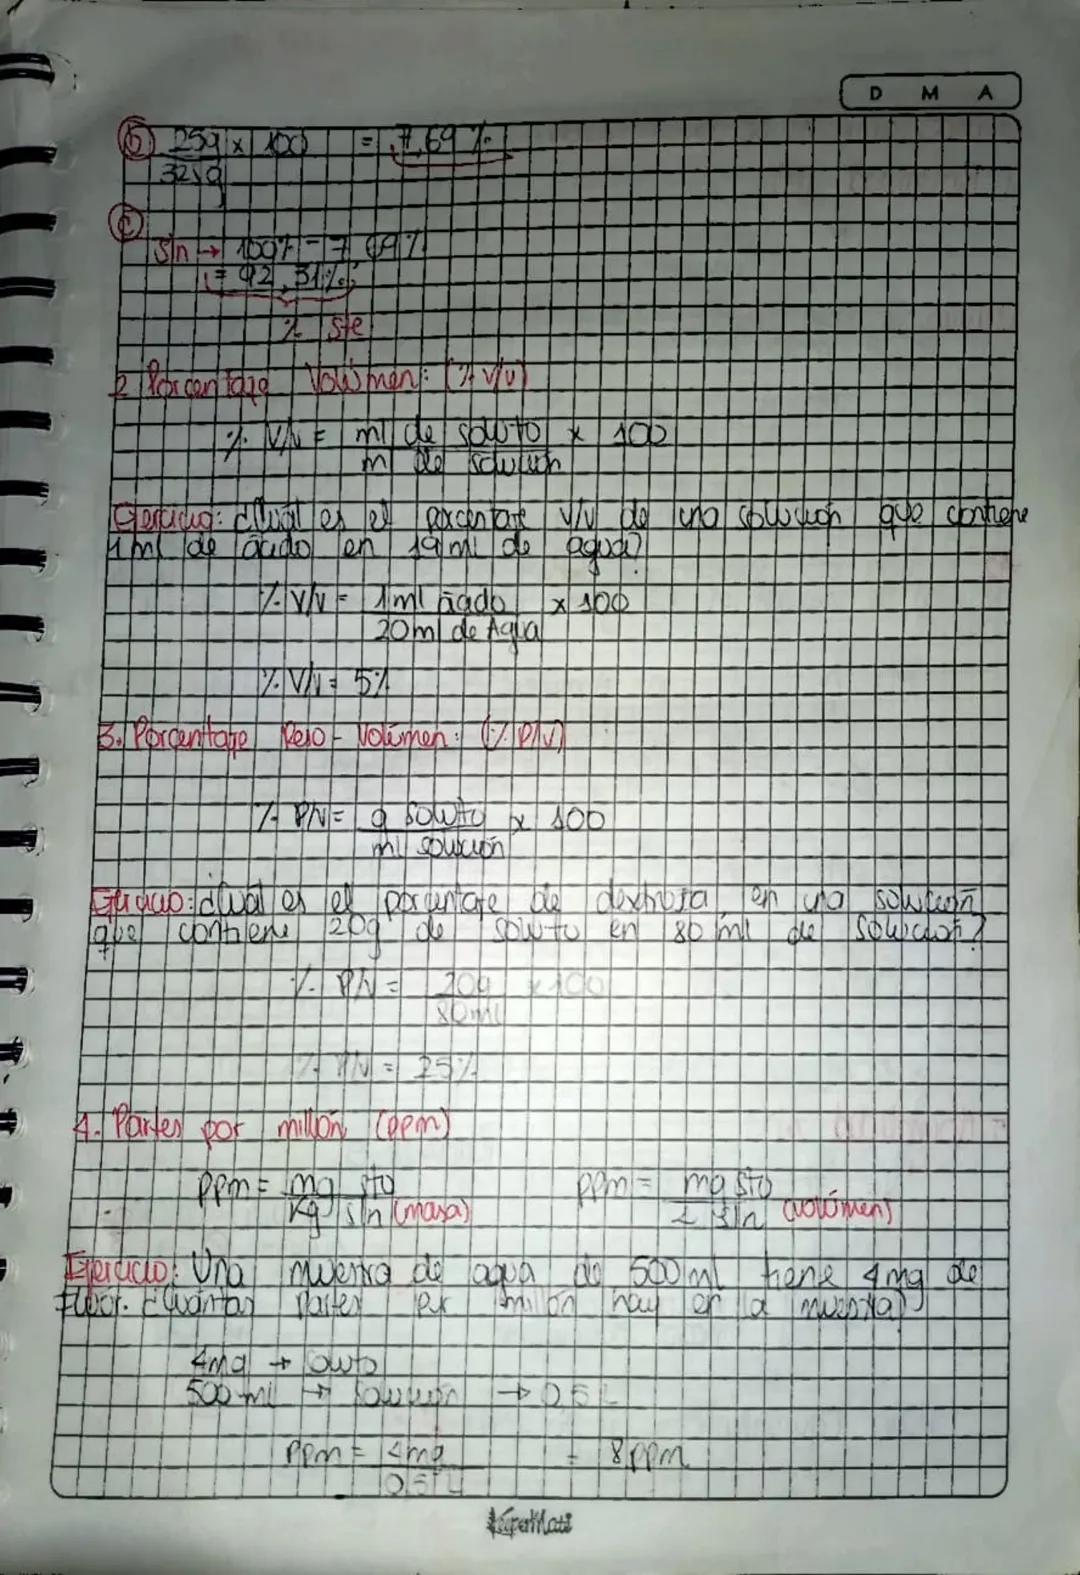 D M A
b) 25g x 100 = 7,69%
325g
c)
Sln → 100% - 7,69%
= 92,31%
% Ste
2. Porcentaje Volúmen: (% v/v)
% V/V = ml de soluto x 100
ml de solución
Ejercicio: ¿Cual es el porcentaje v/v de una solución que contiene
1ml de ácido en 19 ml de agua?
% V/V = 1ml ácido x 100
20ml de Agua
% V/V = 5%
3. Porcentaje Peso - Volúmen: (% P/V)
% P/V = g soluto x 100
ml solución
Ejercicio: ¿Cual es el porcentaje de dextrosa en una solución
que contiene 20g de soluto en 80 ml de solución?
% P/V = 20g x 100
80ml
% P/V = 25%
4. Partes por millón (ppm)
ppm = mg sto ppm = mg sto
Kg sln (masa) L sln (volúmen)
Ejercicio: Una muestra de agua de 500ml tiene 4mg de
Fluor. ¿Cuántas partes por millón hay en la muestra?
4mg → soluto
500 ml → solución → 0,5 L
ppm = 4mg = 8 ppm
0,5 L
SuperMati